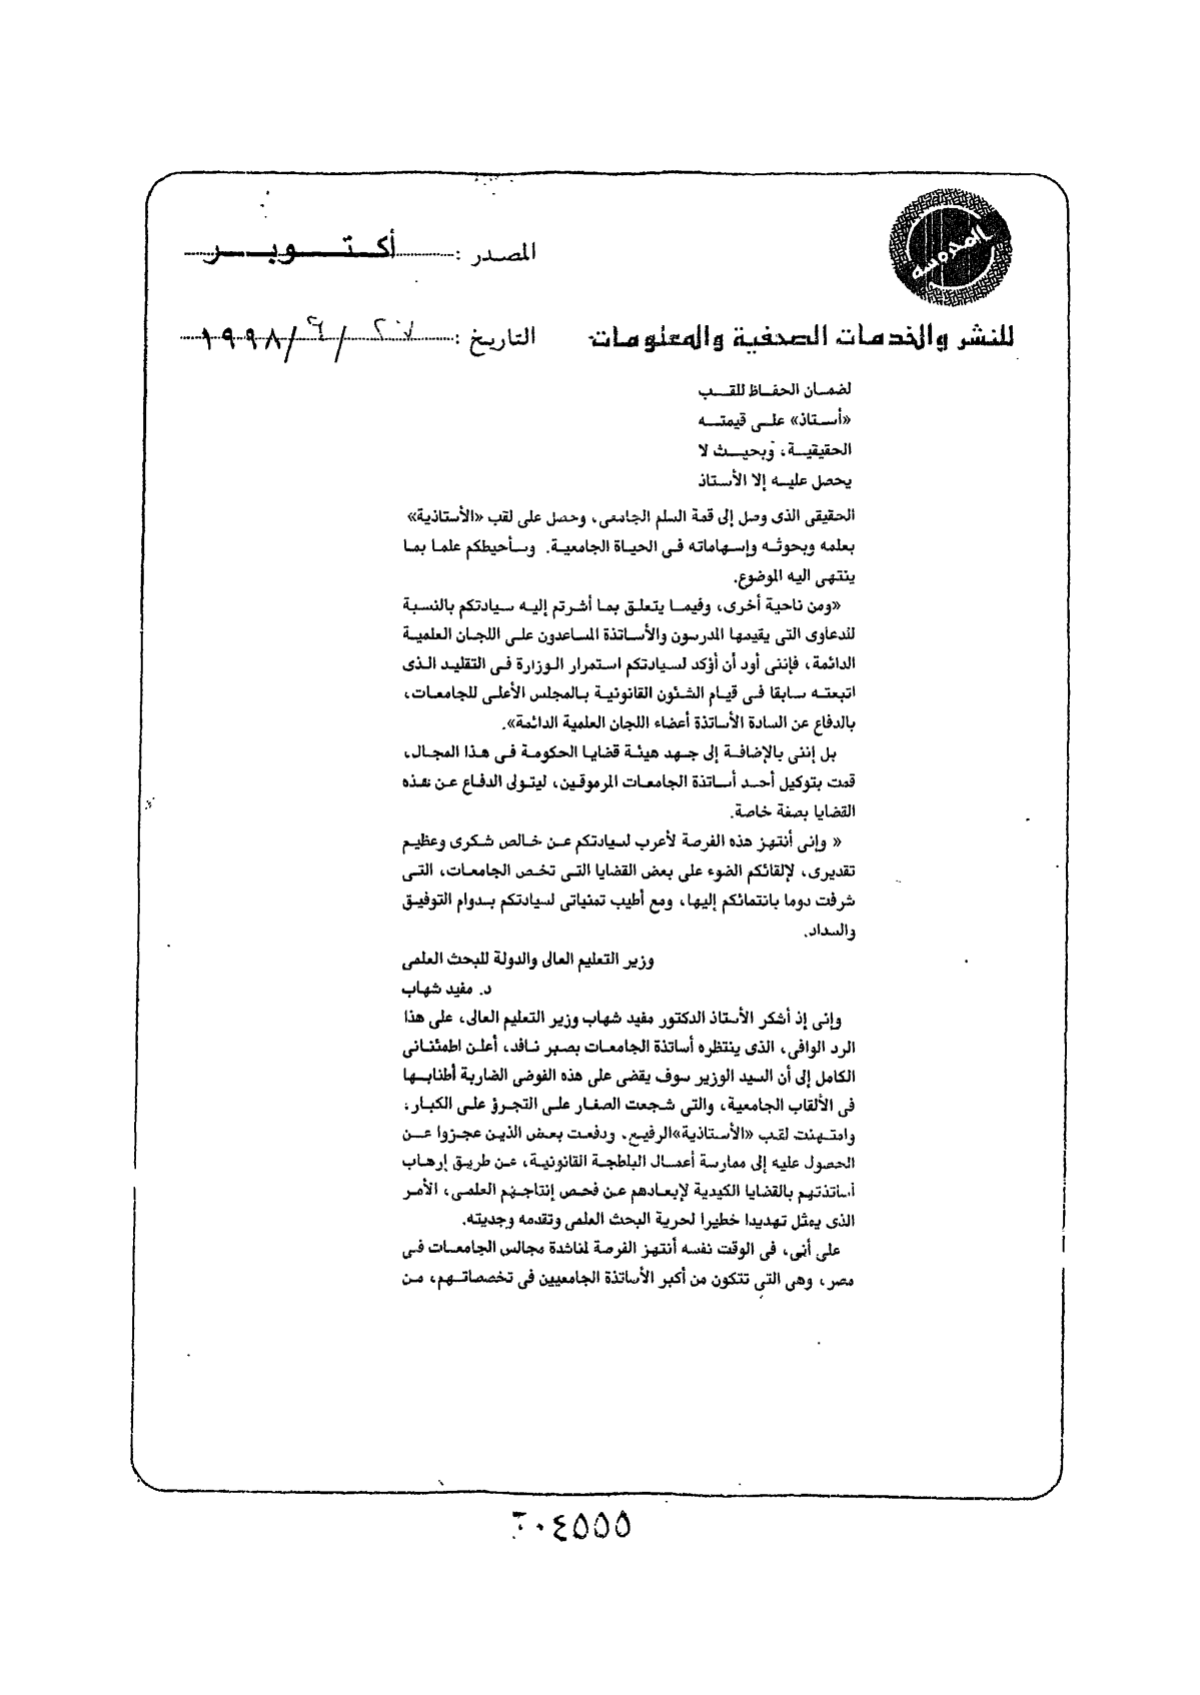 المصدر : أكتوبر
للنشر والخدمات الصحفية والمعلومات
التاريخ : ٢٠٧/٦/١٩٩٨
لضمان الحفاظ للقب
«أستاذ» على قيمته
الحقيقية، وبحيث لا
يحصل عليه إلا الأستاذ
الحقيقى الذى وصل إلى قمة السلم الجامعى، وحصل على لقب «الأستاذية»
بعلمه وبحوثه وإسهاماته فى الحياة الجامعية. وسأحيطكم علما بما
ينتهى اليه الموضوع.
«ومن ناحية أخرى، وفيما يتعلق بما أشرتم إليه سيادتكم بالنسبة
للدعاوى التى يقيمها المدرسون والأساتذة المساعدون على اللجان العلمية
الدائمة، فإننى أود أن أؤكد لسيادتكم استمرار الوزارة فى التقليد الذى
اتبعته سابقا فى قيام الشئون القانونية بالمجلس الأعلى للجامعات،
بالدفاع عن السادة الأساتذة أعضاء اللجان العلمية الدائمة».
بل إننى بالإضافة إلى جهد هيئة قضايا الحكومة فى هذا المجال،
قمت بتوكيل أحد أساتذة الجامعات المرموقين، ليتولى الدفاع عن هذه
القضايا بصفة خاصة.
« وإنى أنتهز هذه الفرصة لأعرب لسيادتكم عن خالص شكرى وعظيم
تقديرى، لإلقائكم الضوء على بعض القضايا التى تخص الجامعات، التى
شرفت دوما بانتمائكم إليها، ومع أطيب تمنياتى لسيادتكم بدوام التوفيق
والسداد.
وزير التعليم العالى والدولة للبحث العلمى
د. مفيد شهاب
وإنى إذ أشكر الأستاذ الدكتور مفيد شهاب وزير التعليم العالى، على هذا
الرد الوافى، الذى ينتظره أساتذة الجامعات بصبر نافد، أعلن اطمئنانى
الكامل إلى أن السيد الوزير سوف يقضى على هذه الفوضى الضاربة أطنابها
فى الألقاب الجامعية، والتى شجعت الصغار على التجرؤ على الكبار،
وامتهنت لقب «الأستاذية»الرفيع، ودفعت بعض الذين عجزوا عن
الحصول عليه إلى ممارسة أعمال البلطجة القانونية، عن طريق إرهاب
أساتذتهم بالقضايا الكيدية لإبعادهم عن فحص إنتاجهم العلمى، الأمر
الذى يمثل تهديدا خطيرا لحرية البحث العلمى وتقدمه وجديته.
على أنى، فى الوقت نفسه أنتهز الفرصة لمناشدة مجالس الجامعات فى
مصر، وهى التى تتكون من أكبر الأساتذة الجامعيين فى تخصصاتهم، من
٢٠٤٥٥٥